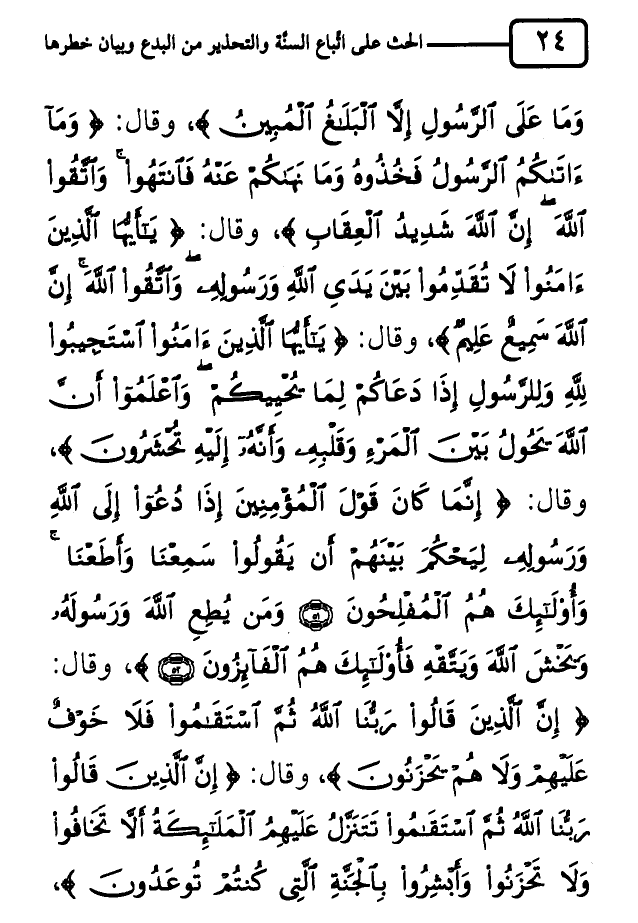 ٢٤ الحث على اتّباع السنَّة والتحذير من البدع وبيان خطرها
وَمَا عَلَى ٱلرَّسُولِ إِلَّا ٱلْبَلَٰغُ ٱلْمُبِينُ ﴾، وقال: ﴿ وَمَآ
ءَاتَىٰكُمُ ٱلرَّسُولُ فَخُذُوهُ وَمَا نَهَىٰكُمْ عَنْهُ فَٱنتَهُوا۟ ۚ وَٱتَّقُوا۟
ٱللَّهَ ۖ إِنَّ ٱللَّهَ شَدِيدُ ٱلْعِقَابِ ﴾، وقال: ﴿ يَٰٓأَيُّهَا ٱلَّذِينَ
ءَامَنُوا۟ لَا تُقَدِّمُوا۟ بَيْنَ يَدَىِ ٱللَّهِ وَرَسُولِهِۦ ۖ وَٱتَّقُوا۟ ٱللَّهَ ۚ إِنَّ
ٱللَّهَ سَمِيعٌ عَلِيمٌ ﴾، وقال: ﴿ يَٰٓأَيُّهَا ٱلَّذِينَ ءَامَنُوا۟ ٱسْتَجِيبُوا۟
لِلَّهِ وَلِلرَّسُولِ إِذَا دَعَاكُمْ لِمَا يُحْيِيكُمْ ۖ وَٱعْلَمُوٓا۟ أَنَّ
ٱللَّهَ يَحُولُ بَيْنَ ٱلْمَرْءِ وَقَلْبِهِۦ وَأَنَّهُۥٓ إِلَيْهِ تُحْشَرُونَ ﴾،
وقال: ﴿ إِنَّمَا كَانَ قَوْلَ ٱلْمُؤْمِنِينَ إِذَا دُعُوٓا۟ إِلَى ٱللَّهِ
وَرَسُولِهِۦ لِيَحْكُمَ بَيْنَهُمْ أَن يَقُولُوا۟ سَمِعْنَا وَأَطَعْنَا ۚ
وَأُو۟لَٰٓئِكَ هُمُ ٱلْمُفْلِحُونَ ٥١ وَمَن يُطِعِ ٱللَّهَ وَرَسُولَهُۥ
وَيَخْشَ ٱللَّهَ وَيَتَّقْهِ فَأُو۟لَٰٓئِكَ هُمُ ٱلْفَآئِزُونَ ٥٢ ﴾، وقال:
﴿ إِنَّ ٱلَّذِينَ قَالُوا۟ رَبُّنَا ٱللَّهُ ثُمَّ ٱسْتَقَٰمُوا۟ فَلَا خَوْفٌ
عَلَيْهِمْ وَلَا هُمْ يَحْزَنُونَ ﴾، وقال: ﴿ إِنَّ ٱلَّذِينَ قَالُوا۟
رَبُّنَا ٱللَّهُ ثُمَّ ٱسْتَقَٰمُوا۟ تَتَنَزَّلُ عَلَيْهِمُ ٱلْمَلَٰٓئِكَةُ أَلَّا تَخَافُوا۟
وَلَا تَحْزَنُوا۟ وَأَبْشِرُوا۟ بِٱلْجَنَّةِ ٱلَّتِى كُنتُمْ تُوعَدُونَ ﴾،